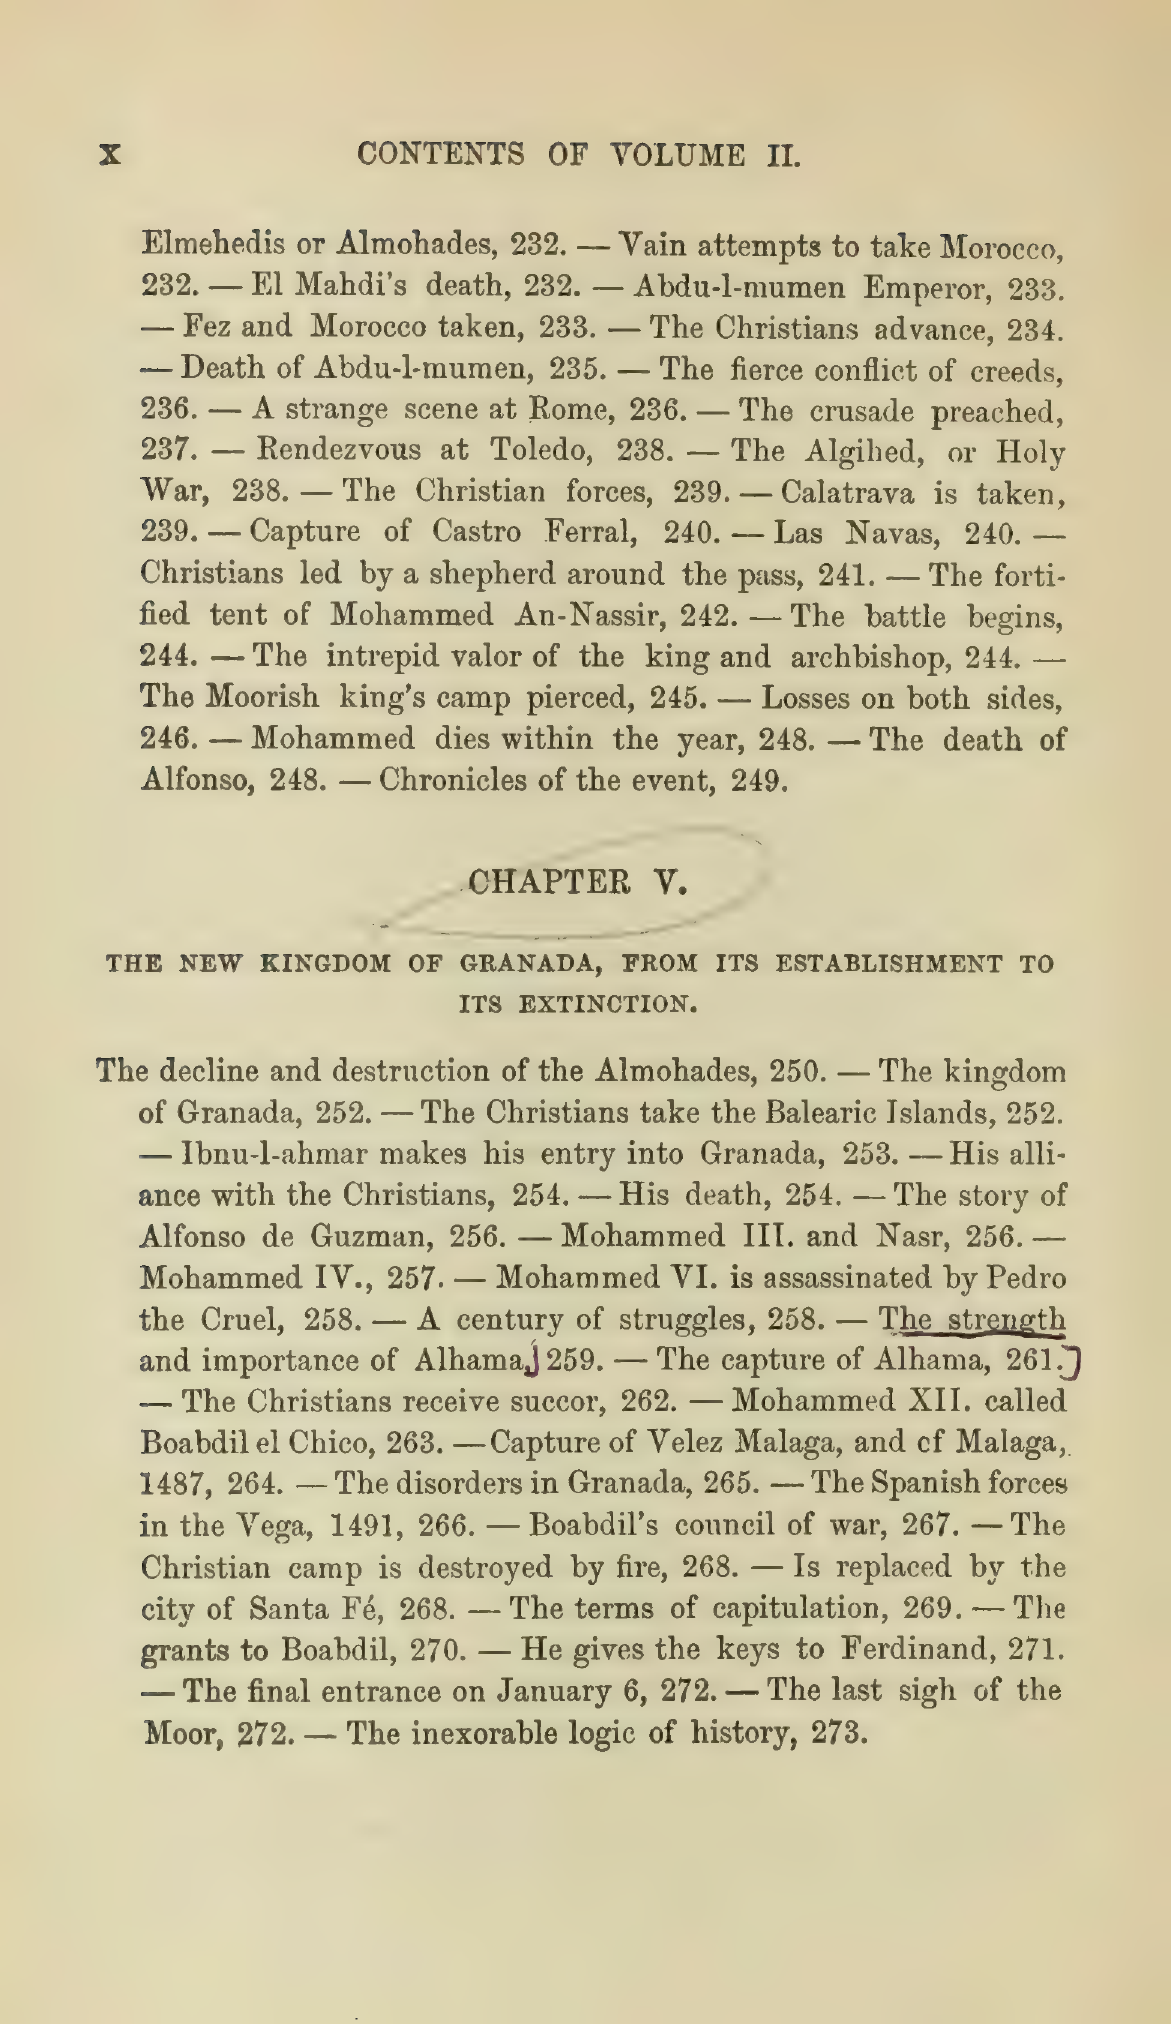 X CONTENTS OF VOLUME II.
Elmehedis or Almohades, 232. — Vain attempts to take Morocco,
232. — El Mahdi's death, 232. — Abdu-l-mumen Emperor, 233.
— Fez and Morocco taken, 233. — The Christians advance, 234.
— Death of Abdu-l-mumen, 235. — The fierce conflict of creeds,
236. — A strange scene at Rome, 236. — The crusade preached,
237. — Rendezvous at Toledo, 238. — The Algihed, or Holy
War, 238. — The Christian forces, 239. — Calatrava is taken,
239. — Capture of Castro Ferral, 240. — Las Navas, 240. —
Christians led by a shepherd around the pass, 241. — The forti-
fied tent of Mohammed An-Nassir, 242. — The battle begins,
244. — The intrepid valor of the king and archbishop, 244. —
The Moorish king's camp pierced, 245. — Losses on both sides,
246. — Mohammed dies within the year, 248. — The death of
Alfonso, 248. — Chronicles of the event, 249.
CHAPTER V.
THE NEW KINGDOM OF GRANADA, FROM ITS ESTABLISHMENT TO
ITS EXTINCTION.
The decline and destruction of the Almohades, 250. — The kingdom
of Granada, 252. — The Christians take the Balearic Islands, 252.
— Ibnu-l-ahmar makes his entry into Granada, 253. — His alli-
ance with the Christians, 254. — His death, 254. — The story of
Alfonso de Guzman, 256. — Mohammed III. and Nasr, 256. —
Mohammed IV., 257. — Mohammed VI. is assassinated by Pedro
the Cruel, 258. — A century of struggles, 258. — The strength
and importance of Alhama, 259. — The capture of Alhama, 261.
— The Christians receive succor, 262. — Mohammed XII. called
Boabdil el Chico, 263. — Capture of Velez Malaga, and of Malaga,
1487, 264. — The disorders in Granada, 265. — The Spanish forces
in the Vega, 1491, 266. — Boabdil's council of war, 267. — The
Christian camp is destroyed by fire, 268. — Is replaced by the
city of Santa Fé, 268. — The terms of capitulation, 269. — The
grants to Boabdil, 270. — He gives the keys to Ferdinand, 271.
— The final entrance on January 6, 272. — The last sigh of the
Moor, 272. — The inexorable logic of history, 273.